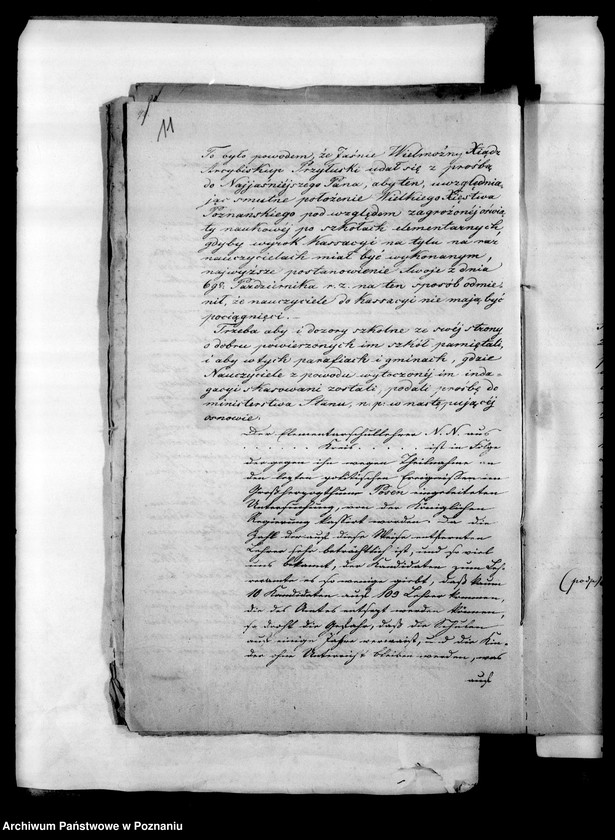 11
To było powodem, że Jaśnie Wielmożny Xiądz
Arcybiskup Przyłuski udał się z prośbą
do Najjaśniejszego Pana, aby ten, uwzględnia-
jąc smutne położenie Wielkiego Xięstwa
Poznańskiego pod względem zagrożonéj oświa-
ty naukowéj po szkołach elementarnych,
gdyby wyrok Kassacyi na tylu na raz
nauczycielach miał być wykonanym,
najwyższe postanowienie swoje z dnia
Października r. z. na ten sposób odmie-
nił, że nauczyciele do kassacyi nie mają być
pociągnięci. –
Trzeba aby i dozory szkolne ze swéj strony
o dobru powierzonych im szkół pamiętali,
i aby w tych parafiach i gminach, gdzie
Nauczyciele z powodu wytoczonéj im inda-
gacyi skasowani zostali, podali prośbę do
ministerstwa Stanu, n. p. w następującéj
osnowie:
Der Elementarschullehrer N. N. aus
. . . . . . Kreis . . . . . . ist in Folge
der gegen ihn wegen Theilnahme an
den letzten politischen Ereignissen im
Großherzogthum Posen eingeleiteten
Untersuchung, von der Königlichen
Regierung kassirt worden. Da die
Zahl der auf diese Weise entfernten
Lehrer sehr beträchtlich ist, und so viel
uns bekannt, der Kandidaten zum Leh-
reramte es so wenige giebt, daß kaum
10 Kandidaten auf 109 Lehrer kommen,
die des Amtes entsetzt werden können,
so droht die Gefahr, daß die Schulen
auf einige Jahre verwaist, und die Kin-
der ohne Unterricht bleiben werden, was
auch
(podp
Archiwum Państwowe w Poznaniu